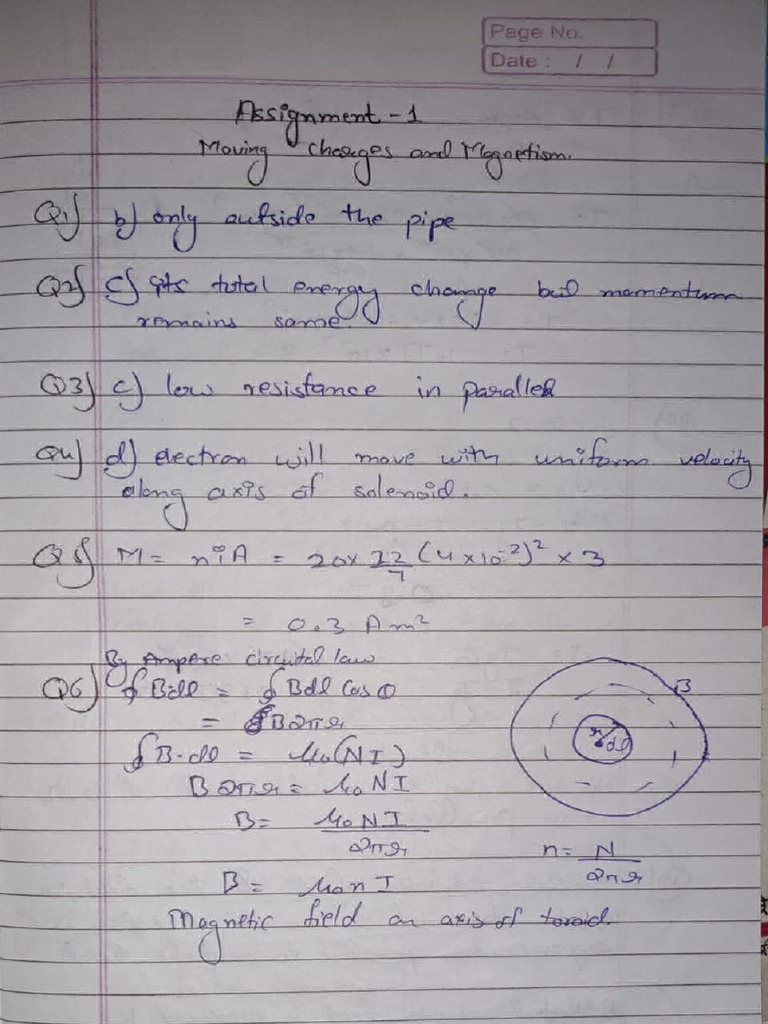 Page No.
Date : / /
Assignment - 1
Moving Charges and Magnetism.
Q1) b) only outside the pipe
Q2) c) its total energy change but momentum
remains same.
Q3) c) low resistance in parallel
Q4) d) electron will move with uniform velocity
along axis of solenoid.
Q5) M = niA = 20 × 22/7 (4 × 10⁻²)² × 3
= 0.3 Am²
By Ampere circuital law
Q6) ∮ B·dl = ∮ Bdl Cos 0
= B2πr
∮ B·dl = μ₀(NI)
B 2πr = μ₀ NI
B = μ₀NI / 2πr
n = N / 2πr
B = μ₀ n I
Magnetic field on axis of toroid.
B
r
dl